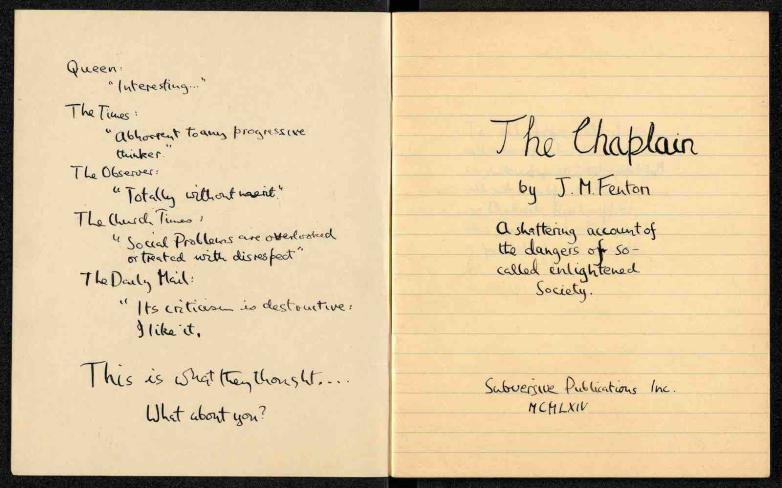 Queen:
"Interesting..."
The Times:
"Abhorrent to any progressive
thinker."
The Observer:
"Totally without merit"
The Church Times:
"Social Problems are overlooked
or treated with disrespect"
The Daily Mail:
"Its criticism is destructive:
I like it.
This is what they thought....
What about you?
The Chaplain
by J.M.Fenton
A shattering account of
the dangers of so-
called enlightened
Society.
Subversive Publications Inc.
MCMLXIV